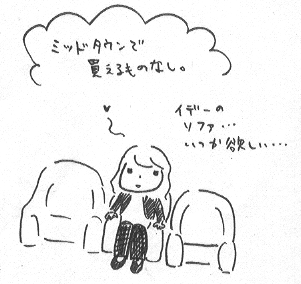 ミッドタウンで
買えるものなし。
イデーの
ソファ…
いつか欲しい…